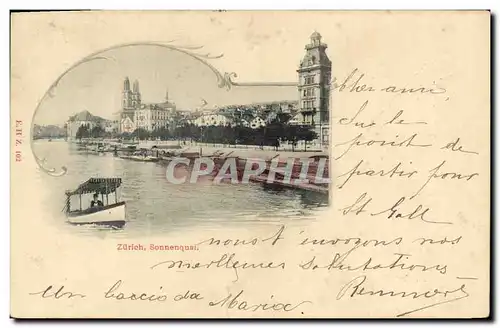 E. H. Z. 102
CPARAMA
Zürich, Sonnenquai.
Cher ami,
Sur le
point de
partir pour
St Gall
nous t'envoyons nos
meilleures salutations,
Un baccio da Maria